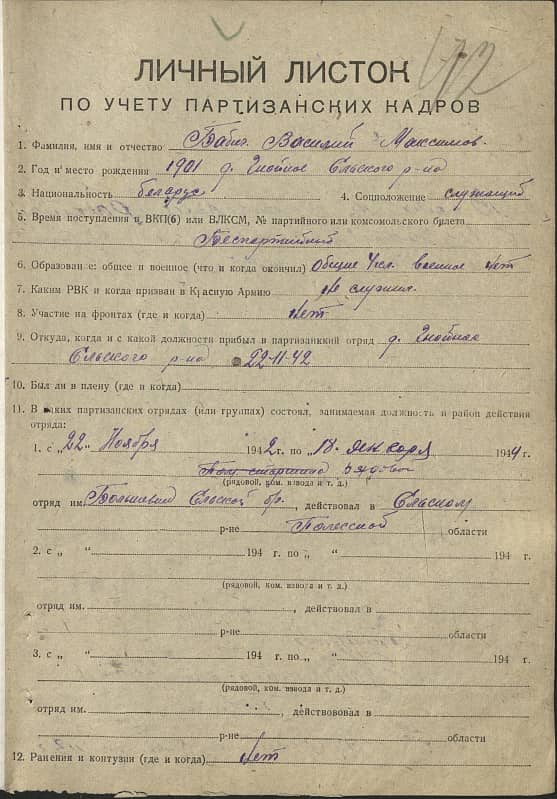 172
ЛИЧНЫЙ ЛИСТОК
ПО УЧЕТУ ПАРТИЗАНСКИХ КАДРОВ
1. Фамилия, имя и отчество Бабич Василий Максимов.
2. Год и место рождения 1901 д. Гнойное Ельского р-на
3. Национальность беларус 4. Соцположение служащий
5. Время поступления в ВКП(б) или ВЛКСМ, № партийного или комсомольского билета
Беспартийный
6. Образование: общее и военное (что и когда окончил) Общее 4 кл. военное нет
7. Каким РВК и когда призван в Красную Армию не служил.
8. Участие на фронтах (где и когда) Нет
9. Откуда, когда и с какой должности прибыл в партизанский отряд д. Гнойное
Ельского р-на 22-11-42
10. Был ли в плену (где и когда)
11. В каких партизанских отрядах (или группах) состоял, занимаемая должность и район действия
отряда:
1. с „22" Ноября 1942 г. по „18" января 1944 г.
Пом. старшина рядовой
(рядовой, ком. взвода и т. д.)
отряд им. Большевик Ельской бр., действовал в Ельском
р-не Полесской области
2. с „ " 194 г. по „ " 194 г.
(рядовой, ком. взвода и т. д.)
отряд им. , действовал в
р-не области
3. с „ " 194 г. по „ " 194 г.
(рядовой, ком. взвода и т. д.)
отряд им. , действововал в
р-не области
12. Ранения и контузии (где и когда) Нет